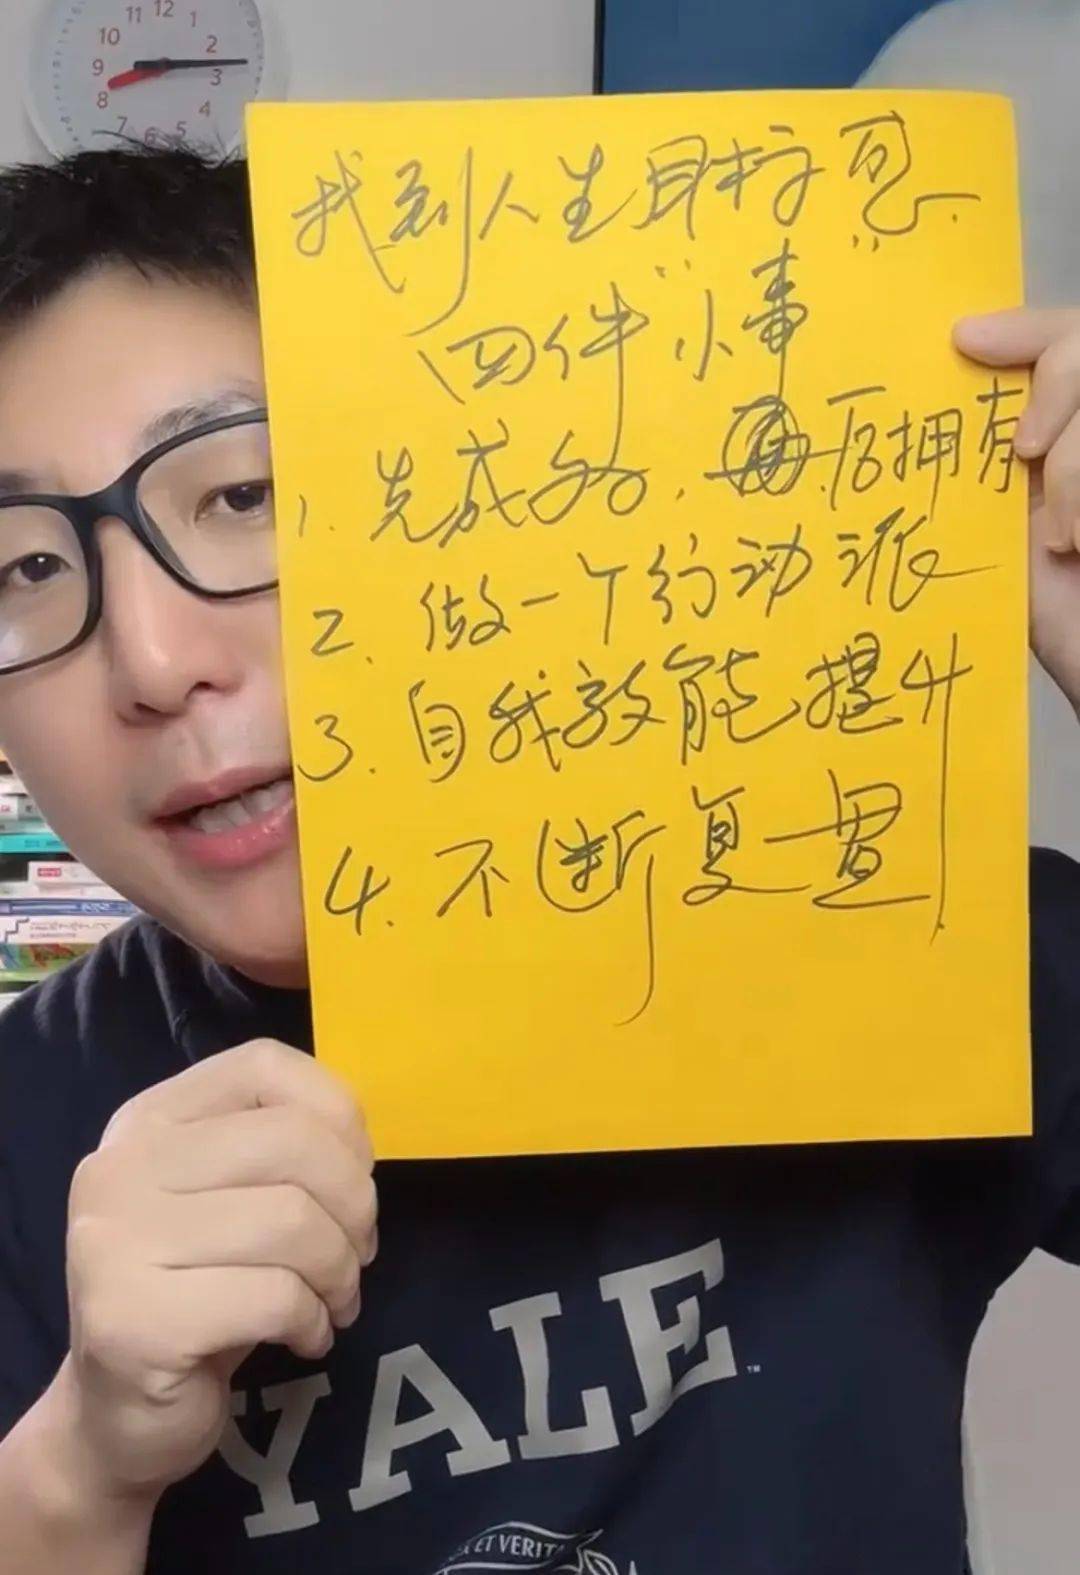 12
11 1
10 2
9 3
8 4
7 6 5
找到人生目标
四件“小事”
1. 先成为, 后拥有
2. 做一个行动派
3. 自我效能提升
4. 不断复盘
YALE™
ET VERIT